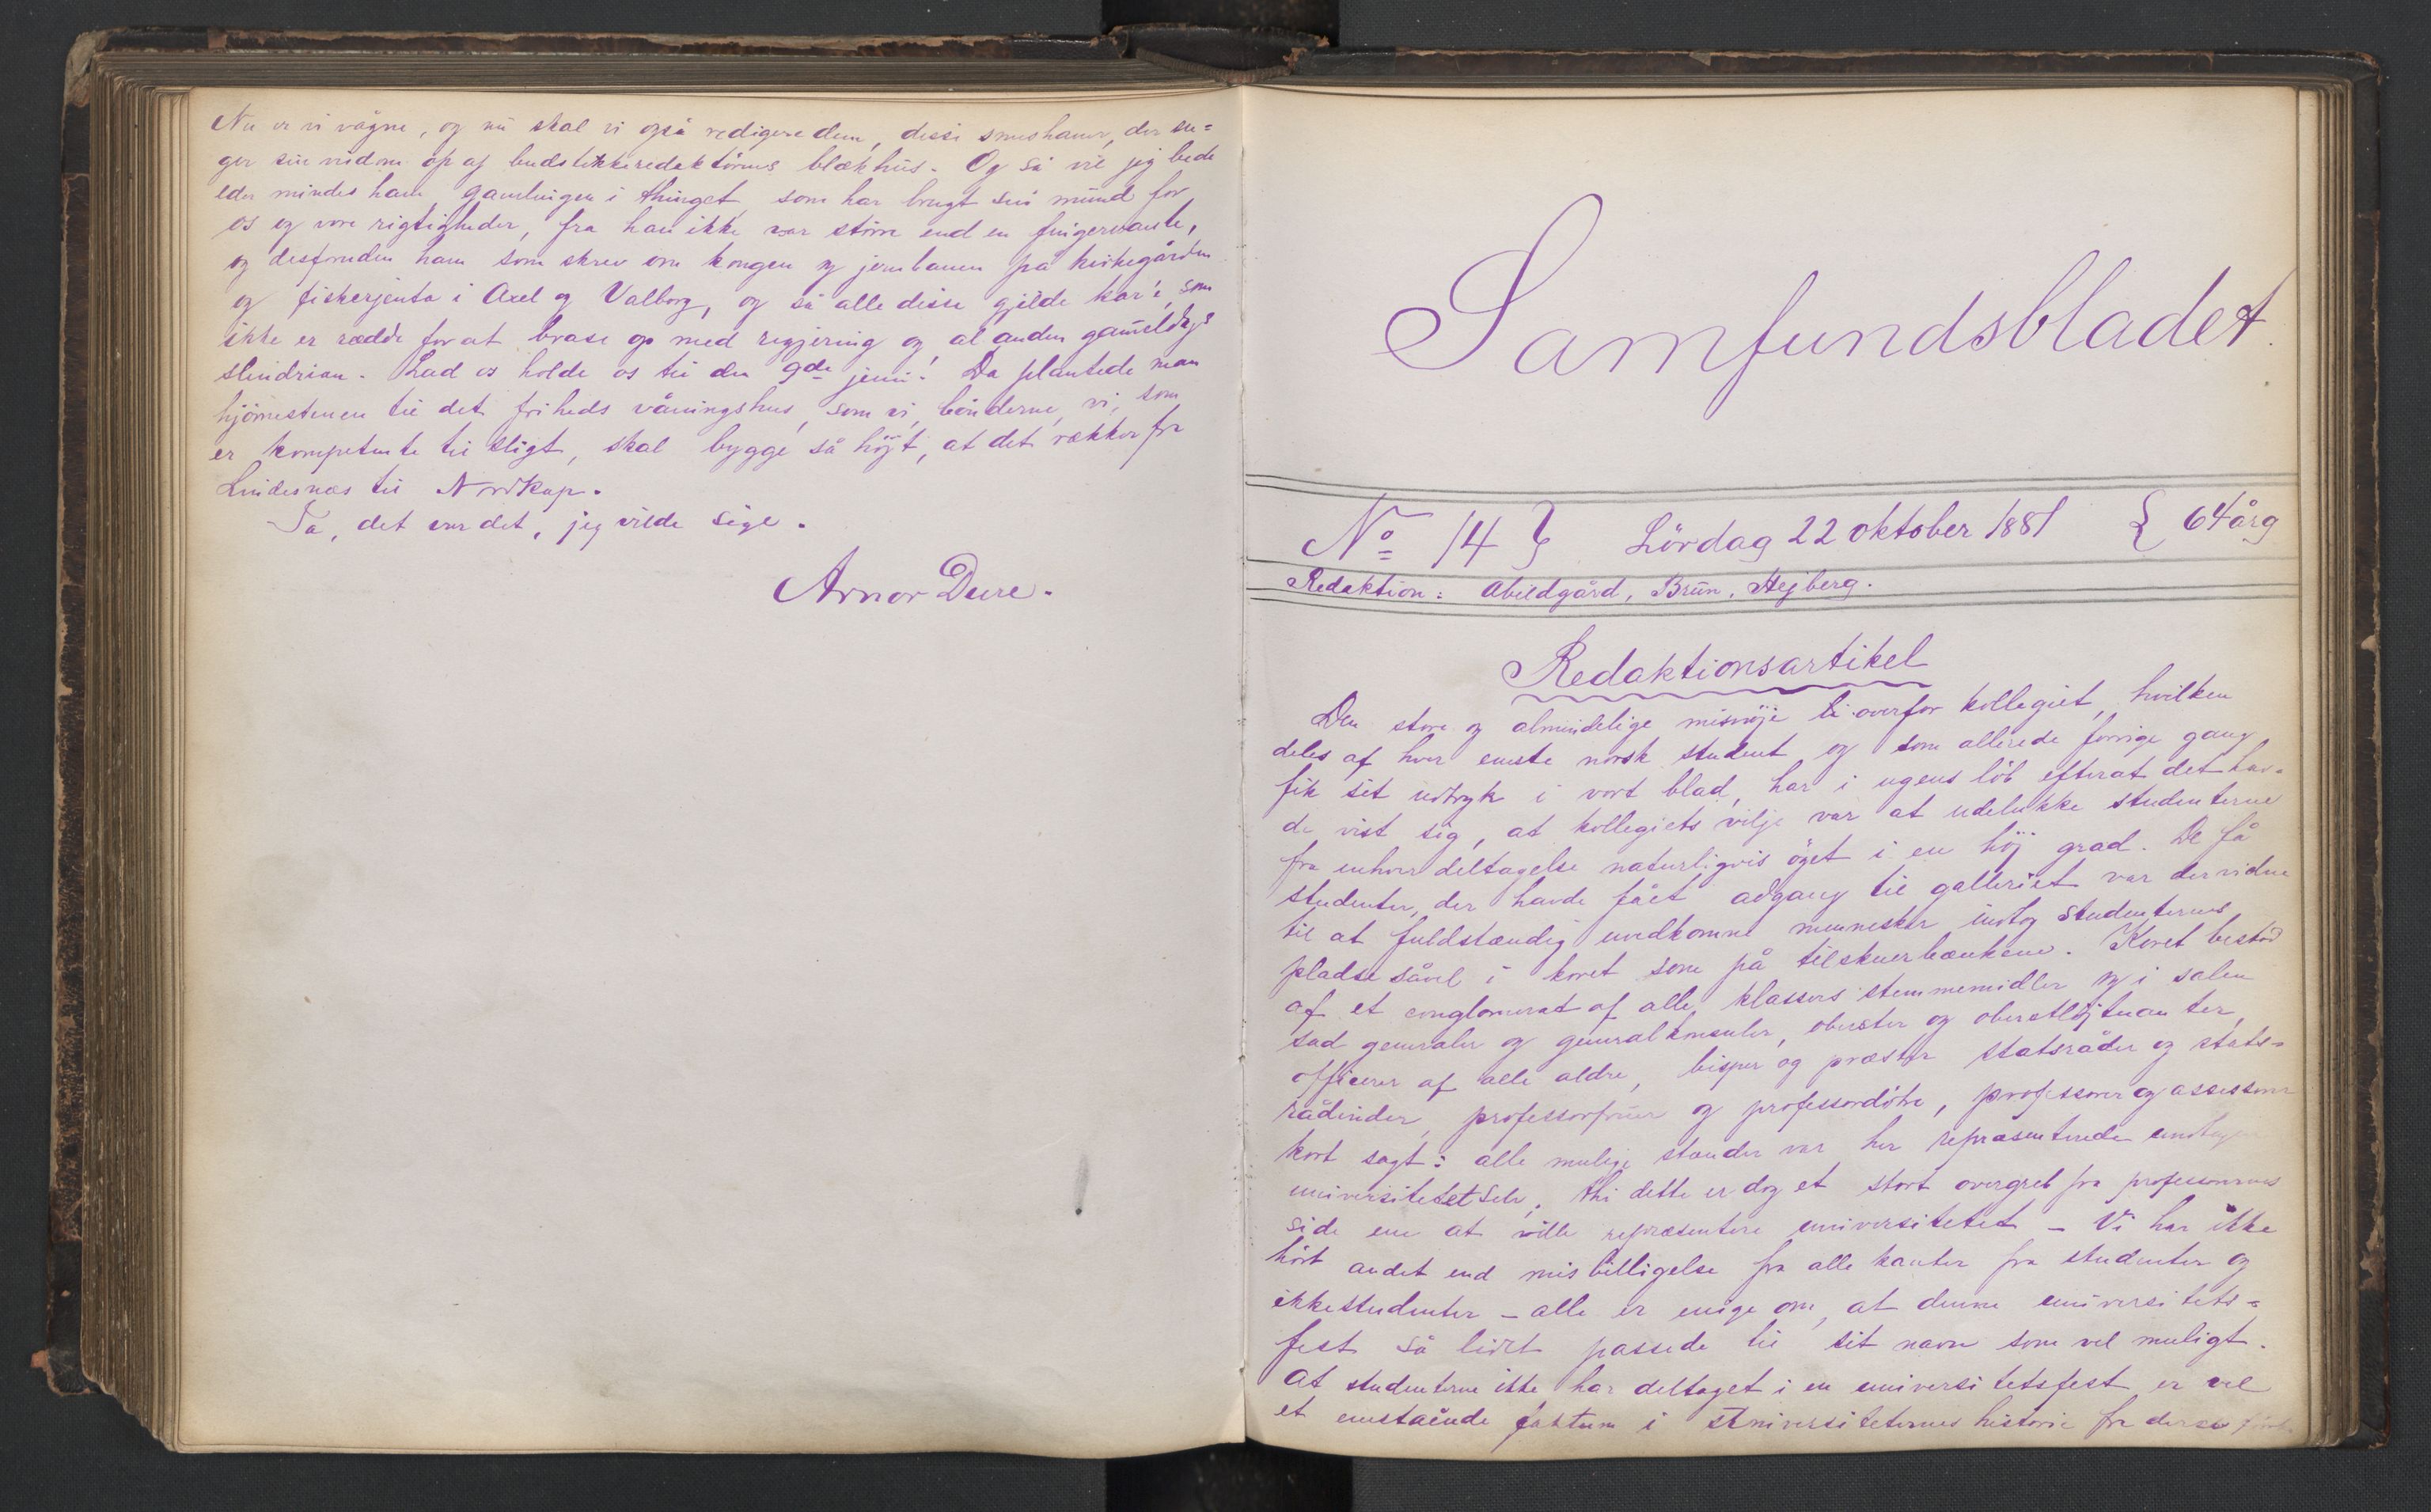 Nu er vi vågne, og nu skal vi også redigere dem, disse smushaner, der su=
ger sin visdom op af budstikkeredaktörens blækhus. Og så vil jeg bede
eder mindes ham, gamlingen i thinget, som har brugt sin mund for
os og vore rigtigheder, fra han ikke var större end en fingervante,
og desforuden ham som skrev om kongen og jernbanen på kirkegården
og fiskerjenta i Axel og Valborg, og så alle disse gjilde kar'e, som
ikke er rædde for at brase op med regjering og al anden gameldags
slendrian. Lad os holde os til den 9de juni! Da plantede man
hjörnestenen til det friheds våningshus, som vi, bönderne, vi, som
er kompetente til sligt, skal bygge så höjt, at det rækker fra
Lindesnæs til Nordkap.
Ja, det var det, jeg vilde sige.
Arnor Dure.
Samfundsbladet.
No 14 } Lördag 22 oktober 1881 { 64 årg
Redaktion: Abildgård, Brun, Hejberg.
Redaktionsartikel
Den store og almindelige misnöje li overfor kollegiet, hvilken
deles af hver eneste norsk student og som allerede forrige gang
fik sit udtryk i vort blad, har i ugens löb efterat det hav=
de vist sig, at kollegiets vilje var at udelukke studenterne
fra enhver deltagelse naturligvis öget i en höj grad. De få
studenter, der havde fået adgang til galleriet var der vidne
til at fuldstændig uvedkomne mennesker indtog studenternes
pladse såvel i koret som på tilskuerbænkene. Koret bestod
af et conglomerat af alle klassers stemmemidler og i salen
sad generaler og generalkonsuler, oberster og oberstlöjtnanter,
officerer af alle aldre, bisper og præster statsråder og stats=
rådinder, professorfruer og professordötre, professorer og assessorer
kort sagt: alle mulige stænder var her repræsenterede undtagen
universitetet selv, thi dette er dog et stort overgreb fra professorernes
side ene at ville repræsentere universitetet – Vi har ikke
hört andet end misbilligelse fra alle kanter fra studenter og
ikkestudenter – alle er enige om, at denne universitets=
fest så lidet passede til sit navn som vel muligt.
At studenterne ikke har deltaget i en universitetsfest er vel
et enestående faktum i universiteternes historie fra deres